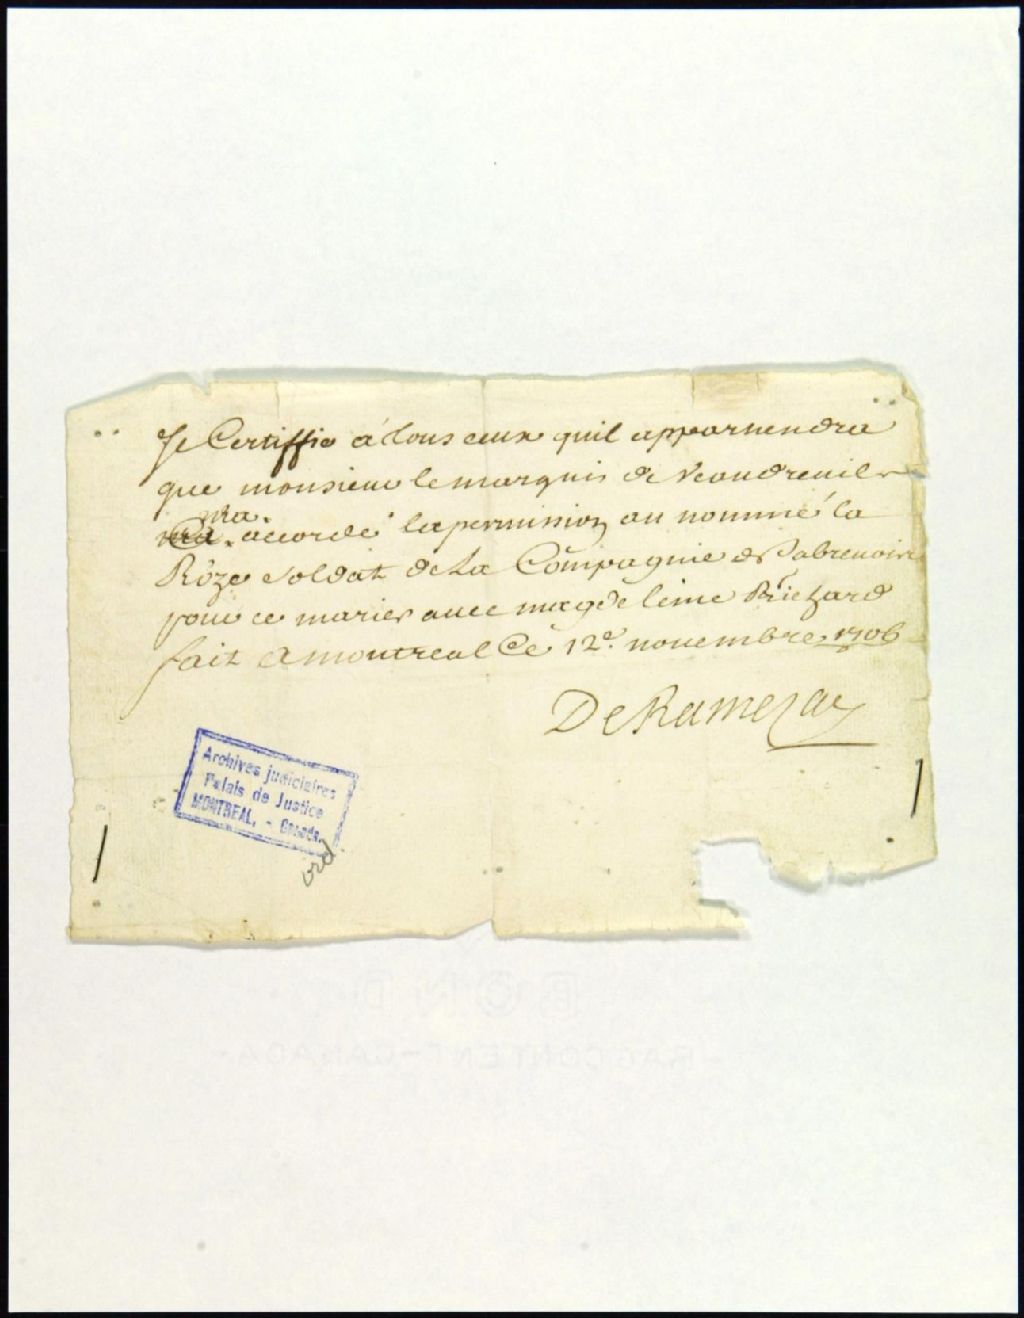 Je Certiffie à tous ceux quil appartiendra
que monsieur le marquis de Veaudreuil
ma
accordé la permission au nommé la
Rôze soldat de La Compagnie de Sabrevoir
pour ce marier avec magdeleine Richard
fait a montreal Ce 12e. novembre 1706
De Ramezay
Archives judiciaires
Palais de Justice
MONTREAL. - Canada.
ord
BOND
RAG CONTENT - CANADA